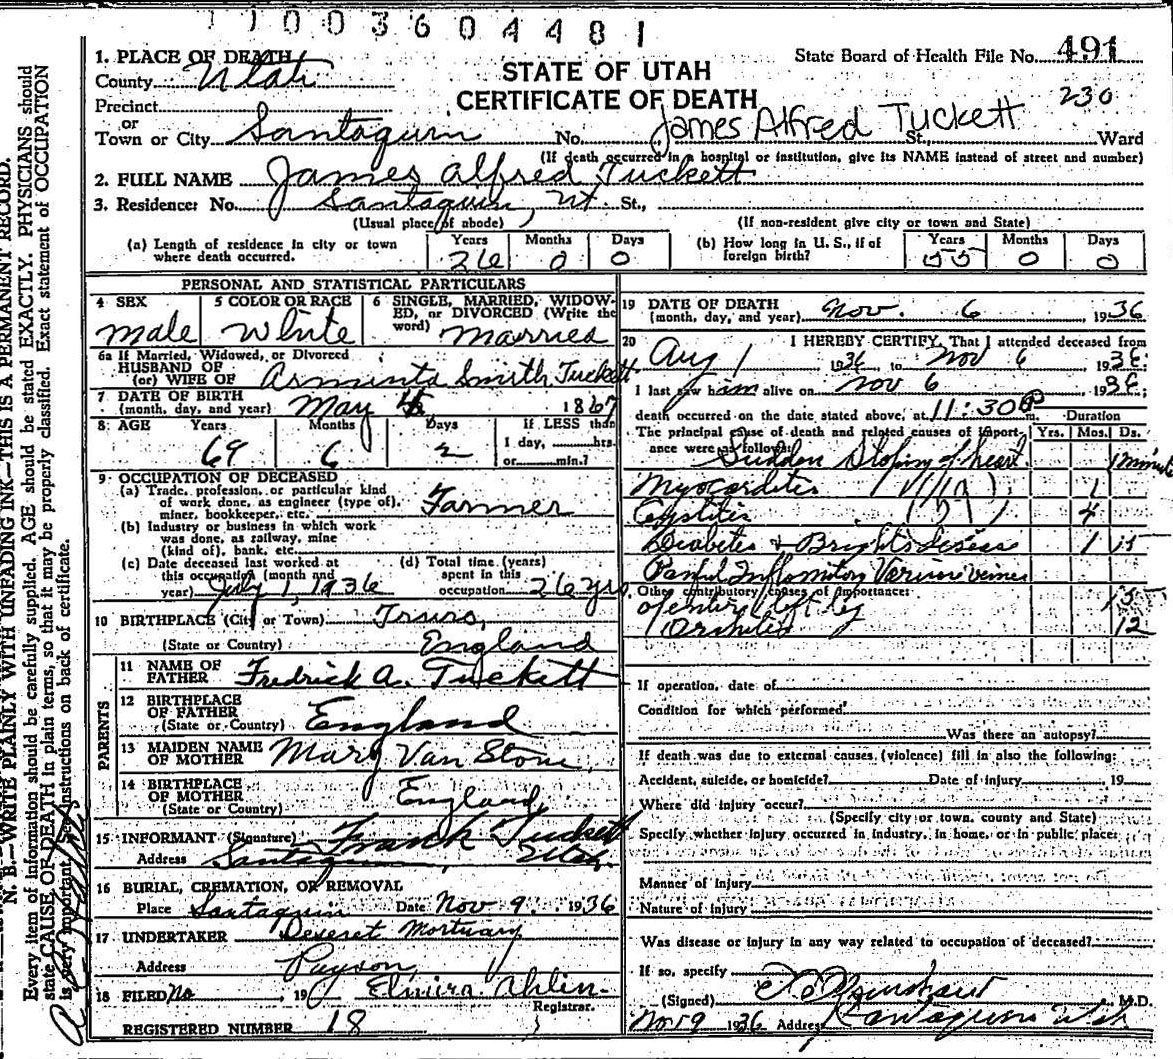 1003604481
1. PLACE OF DEATH
County Utah
State Board of Health File No. 491
STATE OF UTAH
CERTIFICATE OF DEATH
230
Precinct
or
Town or City Santaquin No. James Alfred Tuckett St., Ward
(If death occurred in a hospital or institution, give its NAME instead of street and number)
2. FULL NAME James Alfred Tuckett
3. Residence: No. Santaquin, Ut. St.,
(Usual place of abode) (If non-resident give city or town and State)
(a) Length of residence in city or town where death occurred. Years 26 Months 0 Days 0
(b) How long in U. S., if of foreign birth? Years 55 Months 0 Days 0
PERSONAL AND STATISTICAL PARTICULARS
4 SEX Male
5 COLOR OR RACE White
6 SINGLE, MARRIED, WIDOWED, or DIVORCED (Write the word) Married
6a If Married, Widowed, or Divorced
HUSBAND OF
(or) WIFE OF Arminta Smith Tuckett
7 DATE OF BIRTH
(month, day, and year) May 4, 1867
8 AGE Years 69 Months 6 Days 2
If LESS than
1 day, hrs.
or min.?
9 OCCUPATION OF DECEASED
(a) Trade, profession, or particular kind
of work done, as engineer (type of),
miner, bookkeeper, etc. Farmer
(b) Industry or business in which work
was done, as railway, mine
(kind of), bank, etc.
(c) Date deceased last worked at
this occupation (month and
year) July 1, 1936
(d) Total time (years)
spent in this
occupation 26 yrs
10 BIRTHPLACE (City or Town) Truro,
(State or Country) England
PARENTS
11 NAME OF
FATHER Fredrick A. Tuckett
12 BIRTHPLACE
OF FATHER
(State or Country) England
13 MAIDEN NAME
OF MOTHER Mary Van Stone
14 BIRTHPLACE
OF MOTHER
(State or Country) England
15 INFORMANT (Signature) Frank Tuckett
Address Santaquin Utah
16 BURIAL, CREMATION, OR REMOVAL
Place Santaquin Date Nov 9. 1936
17 UNDERTAKER Deseret Mortuary
Address Payson
18 FILED No 19 Elmira Ahlin
Registrar.
REGISTERED NUMBER 18
19 DATE OF DEATH
(month, day, and year) Nov. 6 1936
20 I HEREBY CERTIFY, That I attended deceased from
Aug 1 1936 to Nov 6 1936
I last saw him alive on Nov 6 1936;
death occurred on the date stated above, at 11:30 P m. Duration
The principal cause of death and related causes of importance were as follows: Yrs. Mos. Ds.
Sudden Stoping of heart 1 minute
Myocarditis 1
Cystitis 4
Diabetes & Brights disease 1 15
Painful Inflamitory Varicose veines
Other contributory causes of importance:
of entire left leg 15
Orchitis 12
If operation, date of
Condition for which performed
Was there an autopsy?
If death was due to external causes (violence) fill in also the following:
Accident, suicide, or homicide? Date of injury , 19
Where did injury occur?
(Specify city or town, county and State)
Specify whether injury occurred in industry, in home, or in public place:
Manner of injury
Nature of injury
Was disease or injury in any way related to occupation of deceased?
If so, specify
(Signed) M.D.
Nov 9 1936 Address Santaquin Utah
N. B.—WRITE PLAINLY WITH UNFADING INK—THIS IS A PERMANENT RECORD.
Every item of information should be carefully supplied. AGE should be stated EXACTLY. PHYSICIANS should
state CAUSE OF DEATH in plain terms, so that it may be properly classified. Exact statement of OCCUPATION
is very important. See instructions on back of certificate.